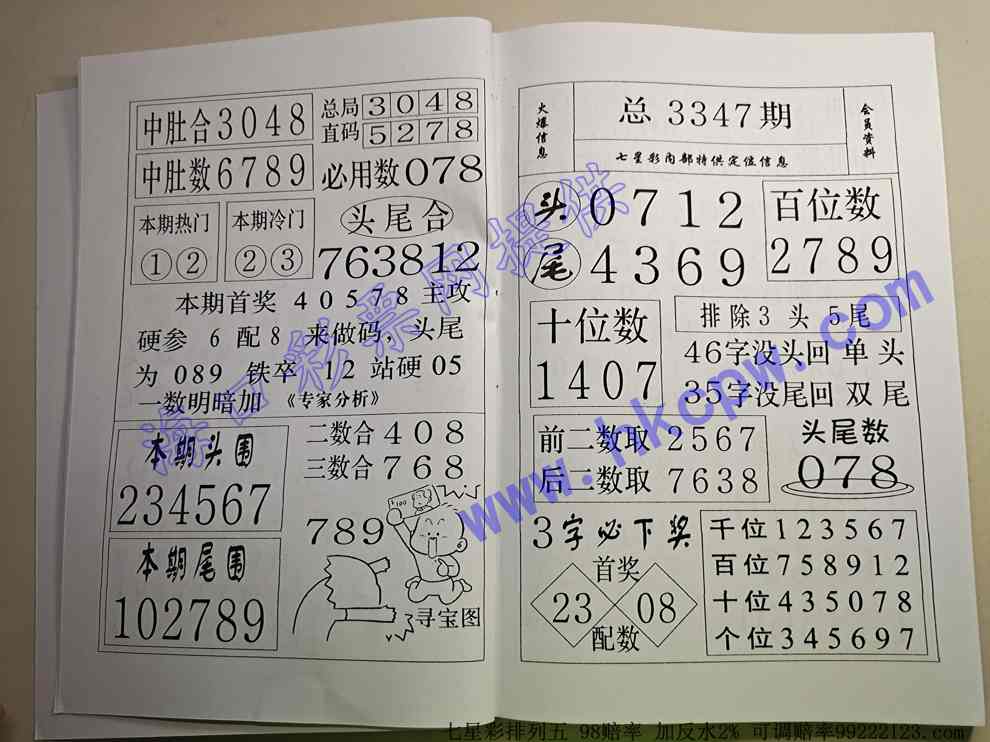 中肚合3048
总局3048
直码5278
中肚数6789
必用数078
本期热门
①②
本期冷门
②③
头尾合
763812
本期首奖 40578 主攻
硬参 6 配8 来做码,头尾
为 089 铁卒 12 站硬 05
一数明暗加 《专家分析》
本期头围
234567
二数合 408
三数合 768
本期尾围
102789
789
100
寻宝图
火爆信息
总 3347期
七星彩内部特供定位信息
会员资料
头 0712
尾 4369
百位数
2789
十位数
1407
排除3 头 5尾
46字没头回 单 头
35字没尾回 双 尾
前二数取 2567
后二数取 7638
头尾数
078
3字必下奖
首奖
23 08
配数
千位123567
百位758912
十位435078
个位345697
海口彩票网提供
www.hkcpw.com
七星彩排列五 98赔率 加反水2% 可调赔率99222123.com